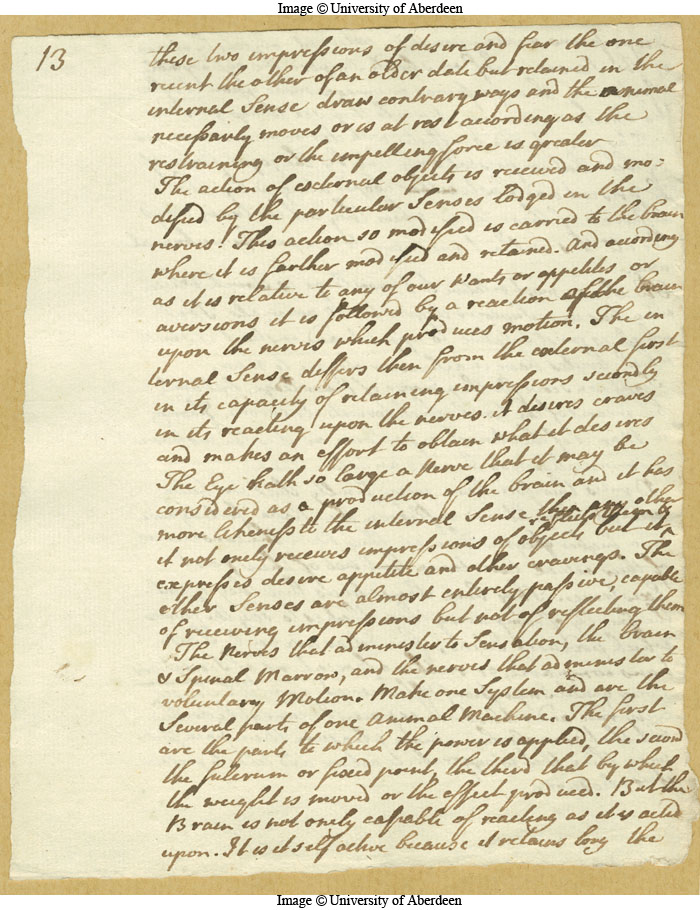 Image © University of Aberdeen
13
these two impressions of desire and fear the one
recent the other of an older date but retained in the
internal Sense draw contrary ways and the animal
necessarly moves or is at rest according as the
restraining or the impelling force is greater
The action of external objects is received and mo=
dified by the particular Senses lodged in the
nerves. This action so modified is carried to the brain
where it is farther modified and retained. And according
as it is relative to any of our wants or appetites or
aversions it is followed by a reaction of the brain
upon the nerves which produces motion. The in
ternal Sense differs then from the external first
in its capacity of retaining impressions secondly
in its reacting upon the nerves. it desires craves
and makes an effort to obtain what it desires
The Eye hath so large a Nerve that it may be
considered as a production of the brain and it has
more likeness to the internal Sense than any other
it not onely receives impressions of objects but it
reflects them &
expresses desire appetite and other cravings. The
other Senses are almost entirely passive, capable
of receiving impressions but not of reflecting them
The Nerves that administer to Sensation, the brain
& Spinal Marrow, and the nerves that administer to
voluntary Motion. Make one System and are the
Several parts of one Animal Machine. The first
are the parts to which the power is applied, the second
the fulcrum or fixed point, the third that by which
the weight is moved or the effect produced. But the
Brain is not onely capable of reacting as it is acted
upon. It is it self active because it retains long the
Image © University of Aberdeen